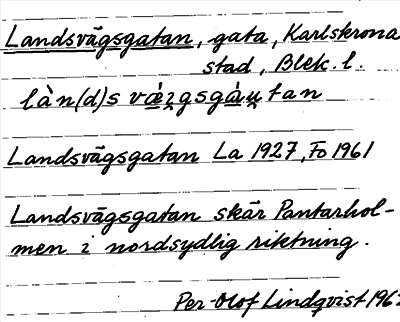 Landsvägsgatan, gata, Karlskrona
stad, Blek. l.
làn(d)s væ̀gsgàutan
Landsvägsgatan La 1927, Fo 1961
Landsvägsgatan skär Pantarhol-
men i nordsydlig riktning.
Per-Olof Lindqvist 196